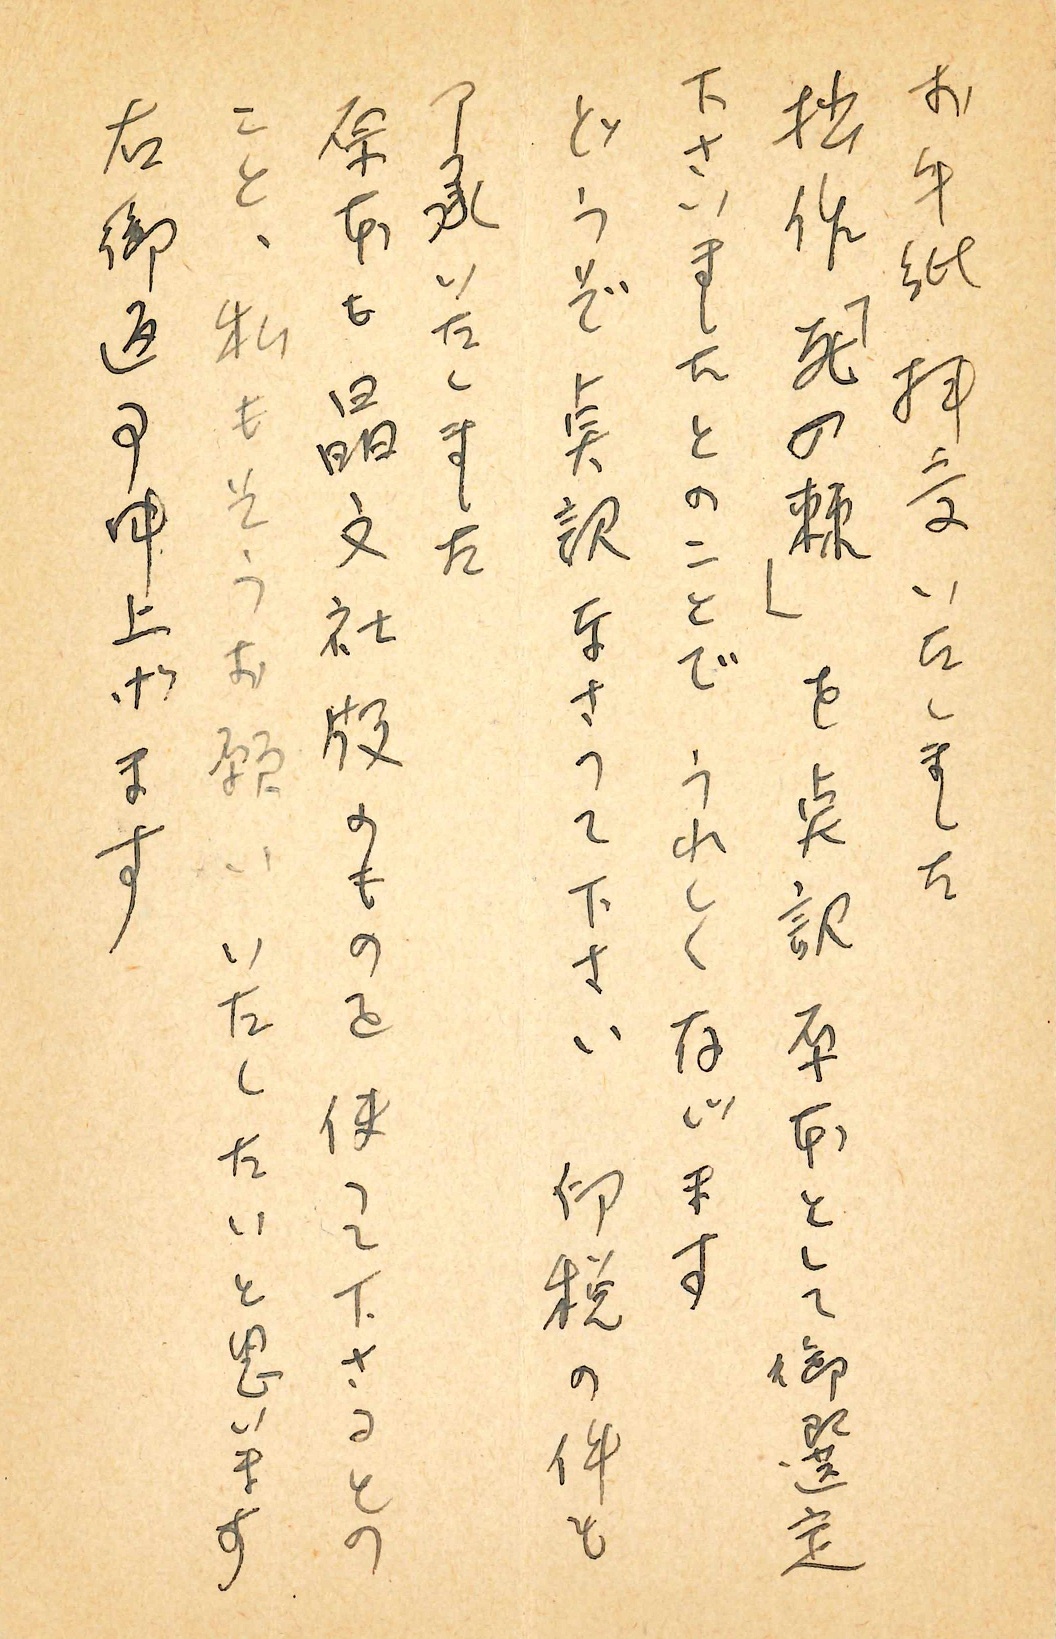 お手紙 拝受いたしました
拙作「死の棘」を点訳原本として御選定
下さいましたとのことで うれしくないます
どうぞ点訳なさって下さい 印税の件も
了承いたしました
原本も晶文社版のものを 使って下さるとの
こと、私もそうお願い いたしたいと思います
右御返事申上げます